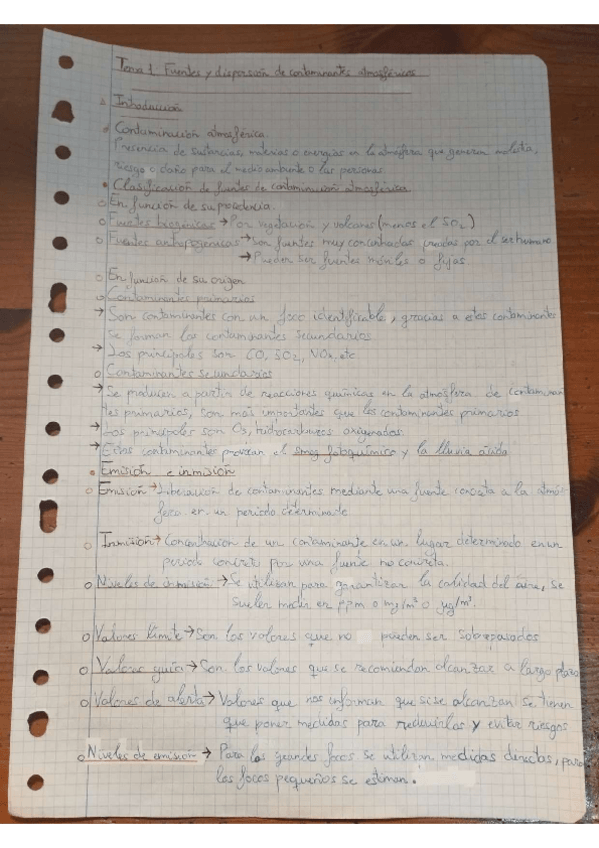 Tema 1. Fuentes y dispersión de contaminantes atmosféricos
Introducción
Contaminación atmosférica.
Presencia de sustancias, materias o energías en la atmósfera que generen molestia,
riesgo o daño para el medio ambiente o las personas
Clasificación de fuentes de contaminación atmosférica
En función de su procedencia.
Fuentes biogénicas → Por vegetación y volcanes (menos el SO2)
Fuentes antropogénicas → son fuentes muy concentradas creadas por el ser humano
→ Pueden ser fuentes móviles o fijas
En función de su origen
Contaminantes primarios
→ Son contaminantes con un foco identificable, gracias a estos contaminantes
se forman los contaminantes secundarios
→ Los principales son CO, SO2, NOx, etc
Contaminantes secundarios
→ Se producen a partir de reacciones químicas en la atmósfera de contaminan
tes primarios, son más importantes que los contaminantes primarios
→ Los principales son O3, hidrocarburos oxigenados
→ Estos contaminantes provocan el smog fotoquímico y la lluvia ácida
Emisión e inmisión
Emisión → Liberación de contaminantes mediante una fuente concreta a la atmós
fera en un periodo determinante
Inmisión → Concentración de un contaminante en un lugar determinado en un
periodo concreto por una fuente no concreta.
Niveles de inmisión → Se utilizan para garantizar la calidad del aire, se
suelen medir en ppm o mg/m³ o µg/m³.
Valores límite → Son los valores que no pueden ser sobrepasados
Valores guía → Son los valores que se recomiendan alcanzar a largo plazo
Valores de alerta → Valores que nos informan que si se alcanzan se tienen
que poner medidas para reducirlos y evitar riesgos
Niveles de emisión → Para los grandes focos se utilizan medidas directas, para
los focos pequeños se estiman.